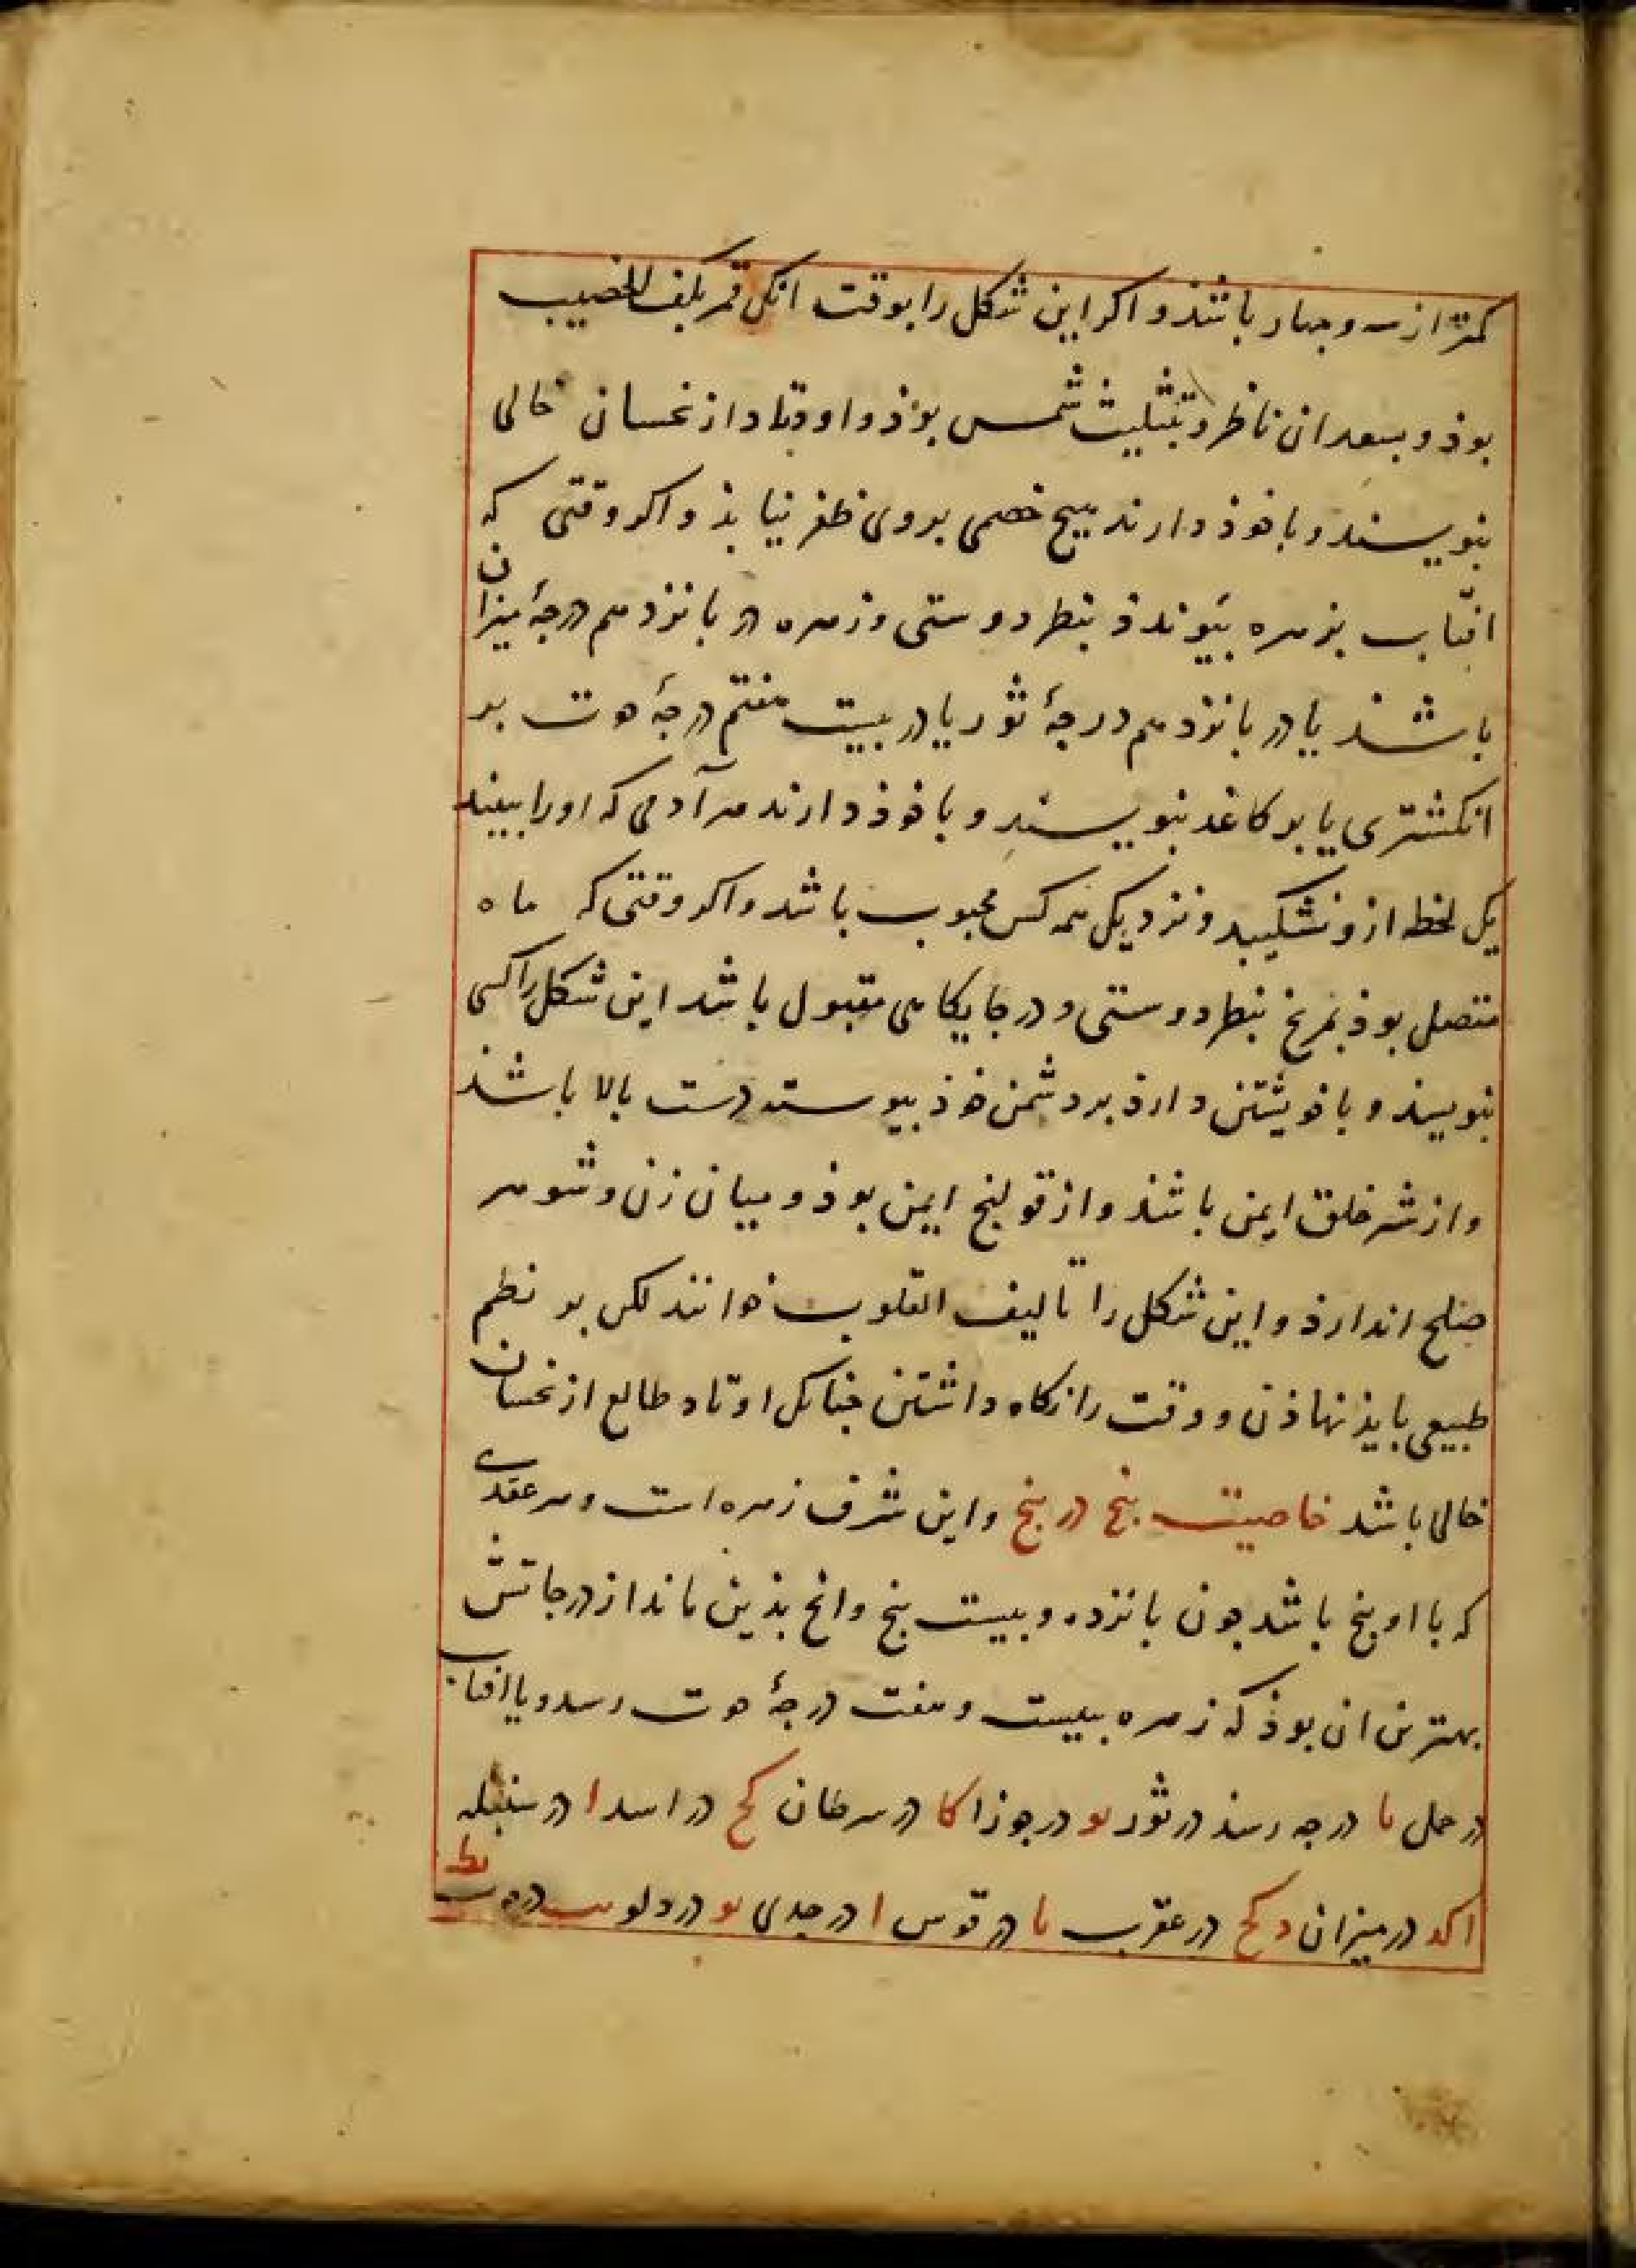 کمتر از سه وجهار باشند و اکر این شکل را بوقت انکی قمر بکف الخضیب
بوذ و بسعدان ناظر و بتثلیث شمس بوذ و اوتاد از نحسان خالی
بنویسند و با خوذ دارند هیج خصمی بروی ظفر نیابذ و اکر وقتی که
افتاب بزهره بیوندذ بنظر دوستی و زهره در بانزدهم درجهٔ میزان
باشند یا در بانزدهم درجهٔ ثور یا در بیست هفتم درجهٔ حوت بر
انکشتری یا بر کاغد بنویسند و با خوذ دارند هر آدمی که اورا ببیند
یک لحظه ازو نشکیبد و نزدیک همه کس محبوب باشد و اکر وقتی که ماه
متصل بوذ بمریخ بنظر دوستی و در جایکاهی مقبول باشد این شکل را کسی
بنویسد و با خویشتن دارذ بر دشمن خوذ بیوسته دست بالا باشذ
و از شر خلق ایمن باشند و از قولنج ایمن بوذ و میان زن و شوهر
صلح اندازذ و این شکل را تالیف القلوب خوانند لکن بر نظم
طبیعی بایذ نهاذن و وقت را نکاه داشتن جنانک اوتاد طالع از نحسان
خالی باشد خاصیت بنج در بنج و این شرف زهره است و هر عقدی
که با او بنج باشد جون بانزده و بیست بنج وانج بذین ماند از درجاتش
بهترین ان بوذ که زهره ببیست و هفت درجهٔ حوت رسد و یا افتاب
در حمل ىا درجه رسد در ثور ىو در جوزا کا در سرطان کح در اسد ا در سنبله ىط
اکد در میزان د کح در عقرب ىا در قوس ا در جدی ىو در دلو ىب در حوت